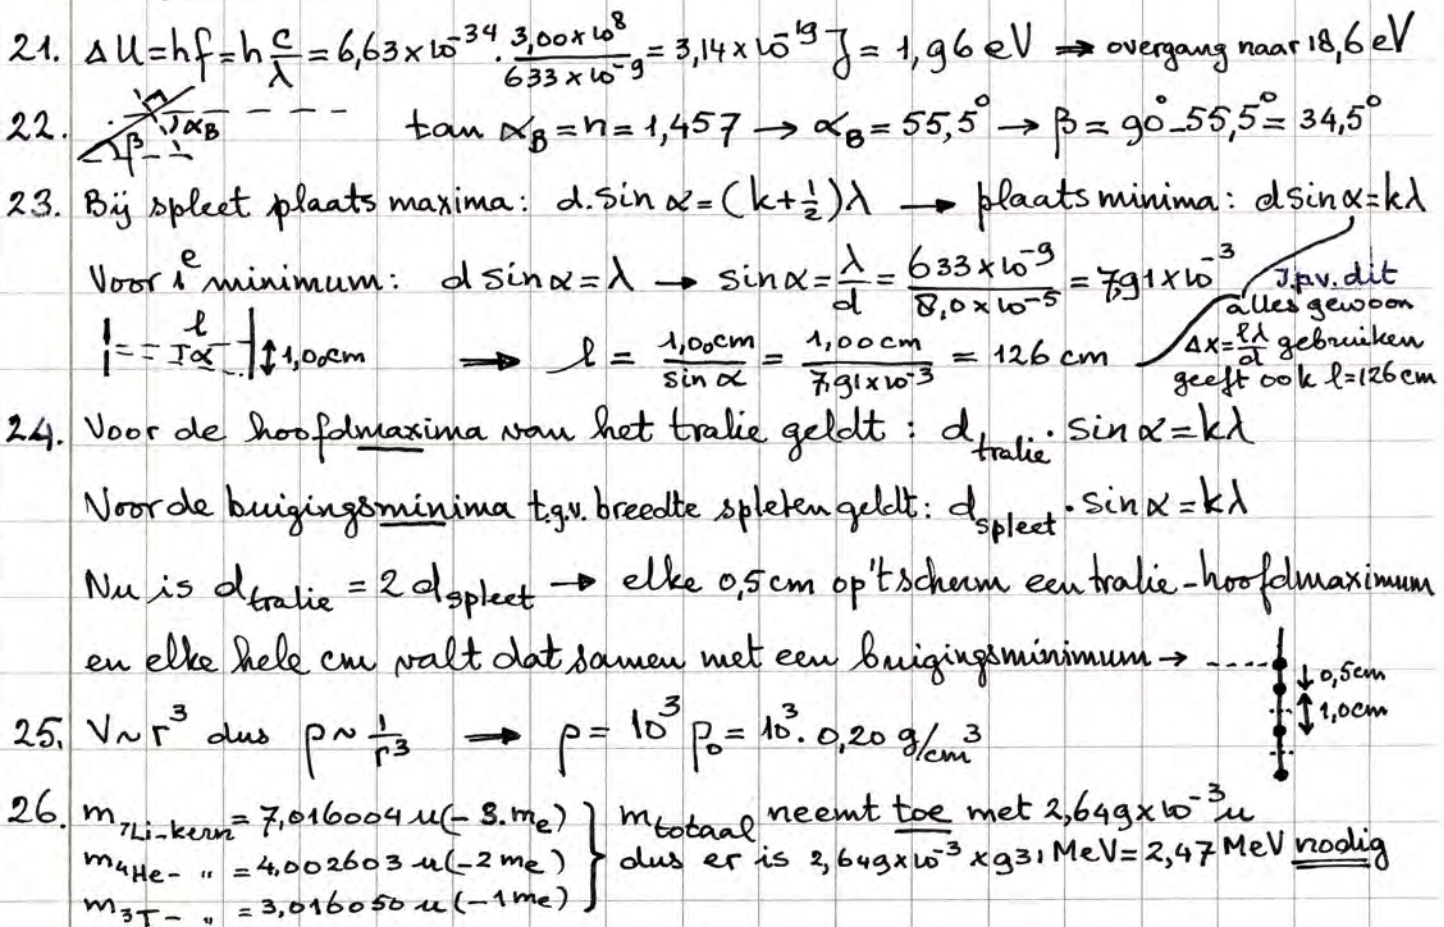 21. ΔU=hf=h c/λ = 6,63×10⁻³⁴ · 3,00×10⁸/633×10⁻⁹ = 3,14×10⁻¹⁹ J = 1,96 eV ⇒ overgang naar 18,6 eV
22. β αB tan αB = n = 1,457 → αB = 55,5° → β = 90°-55,5° = 34,5°
23. Bij spleet plaats maxima: d.sin α = (k+½)λ → plaats minima: d sin α = kλ
Voor 1e minimum: d sin α = λ → sin α = λ/d = 633×10⁻⁹/8,0×10⁻⁵ = 7,91×10⁻³
l α 1,00cm ⇒ l = 1,00cm/sin α = 1,00cm/7,91×10⁻³ = 126 cm
I.p.v. dit
alles gewoon
Δx = lλ/d gebruiken
geeft ook l=126 cm
24. Voor de hoofdmaxima van het tralie geldt : d tralie · sin α = kλ
Voor de buigingsminima t.g.v. breedte spleten geldt: d spleet · sin α = kλ
Nu is d tralie = 2 d spleet → elke 0,5 cm op 't scherm een tralie-hoofdmaximum
en elke hele cm valt dat samen met een buigingsminimum →
0,5cm
1,0cm
25. V ~ r³ dus ρ ~ 1/r³ → ρ = 10³ ρ₀ = 10³. 0,20 g/cm³
26. m 7Li-kern = 7,016004 u (- 3.me)
m 4He- " = 4,002603 u (-2 me)
m 3T- " = 3,016050 u (-1me)
m totaal neemt toe met 2,649×10⁻³ u
dus er is 2,649×10⁻³ × 931 MeV = 2,47 MeV nodig